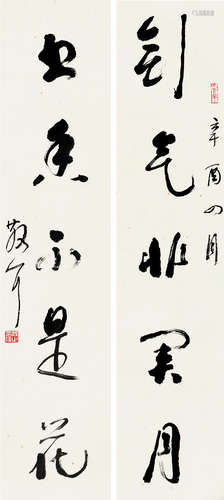 剑气非关月
辛酉四月
书香不是花
散耳